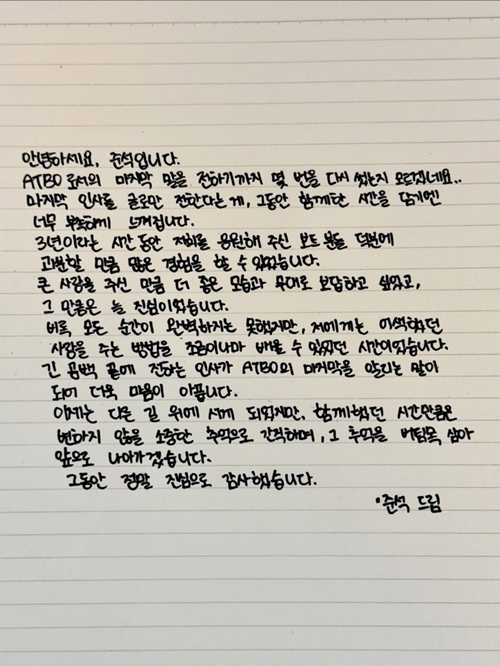 안녕하세요, 준석입니다.
ATBO로서의 마지막 말을 전하기까지 몇 번을 다시 썼는지 모르겠네요..
마지막 인사를 글로만 전한다는게, 그동안 함께한 시간을 담기엔
너무 부족하게 느껴집니다.
3년이라는 시간 동안 저희를 응원해 주신 보트 분들 덕분에
과분할 만큼 많은 경험을 할 수 있었습니다.
큰 사랑을 주신 만큼 더 좋은 모습과 무대로 보답하고 싶었고,
그 마음은 늘 진심이었습니다.
비록 모든 순간이 완벽하지는 못했지만, 저에게는 어색했던
사랑을 주는 방법을 조금이나마 배울 수 있었던 시간이었습니다.
긴 공백 끝에 전하는 인사가 ATBO의 마지막을 알리는 말이
되어 더욱 마음이 아픕니다.
이제는 다른 길 위에 서게 되었지만, 함께했던 시간만큼은
변하지 않을 소중한 추억으로 간직하며, 그 추억을 버팀목 삼아
앞으로 나아가겠습니다.
그동안 정말 진심으로 감사했습니다.
·준석 드림